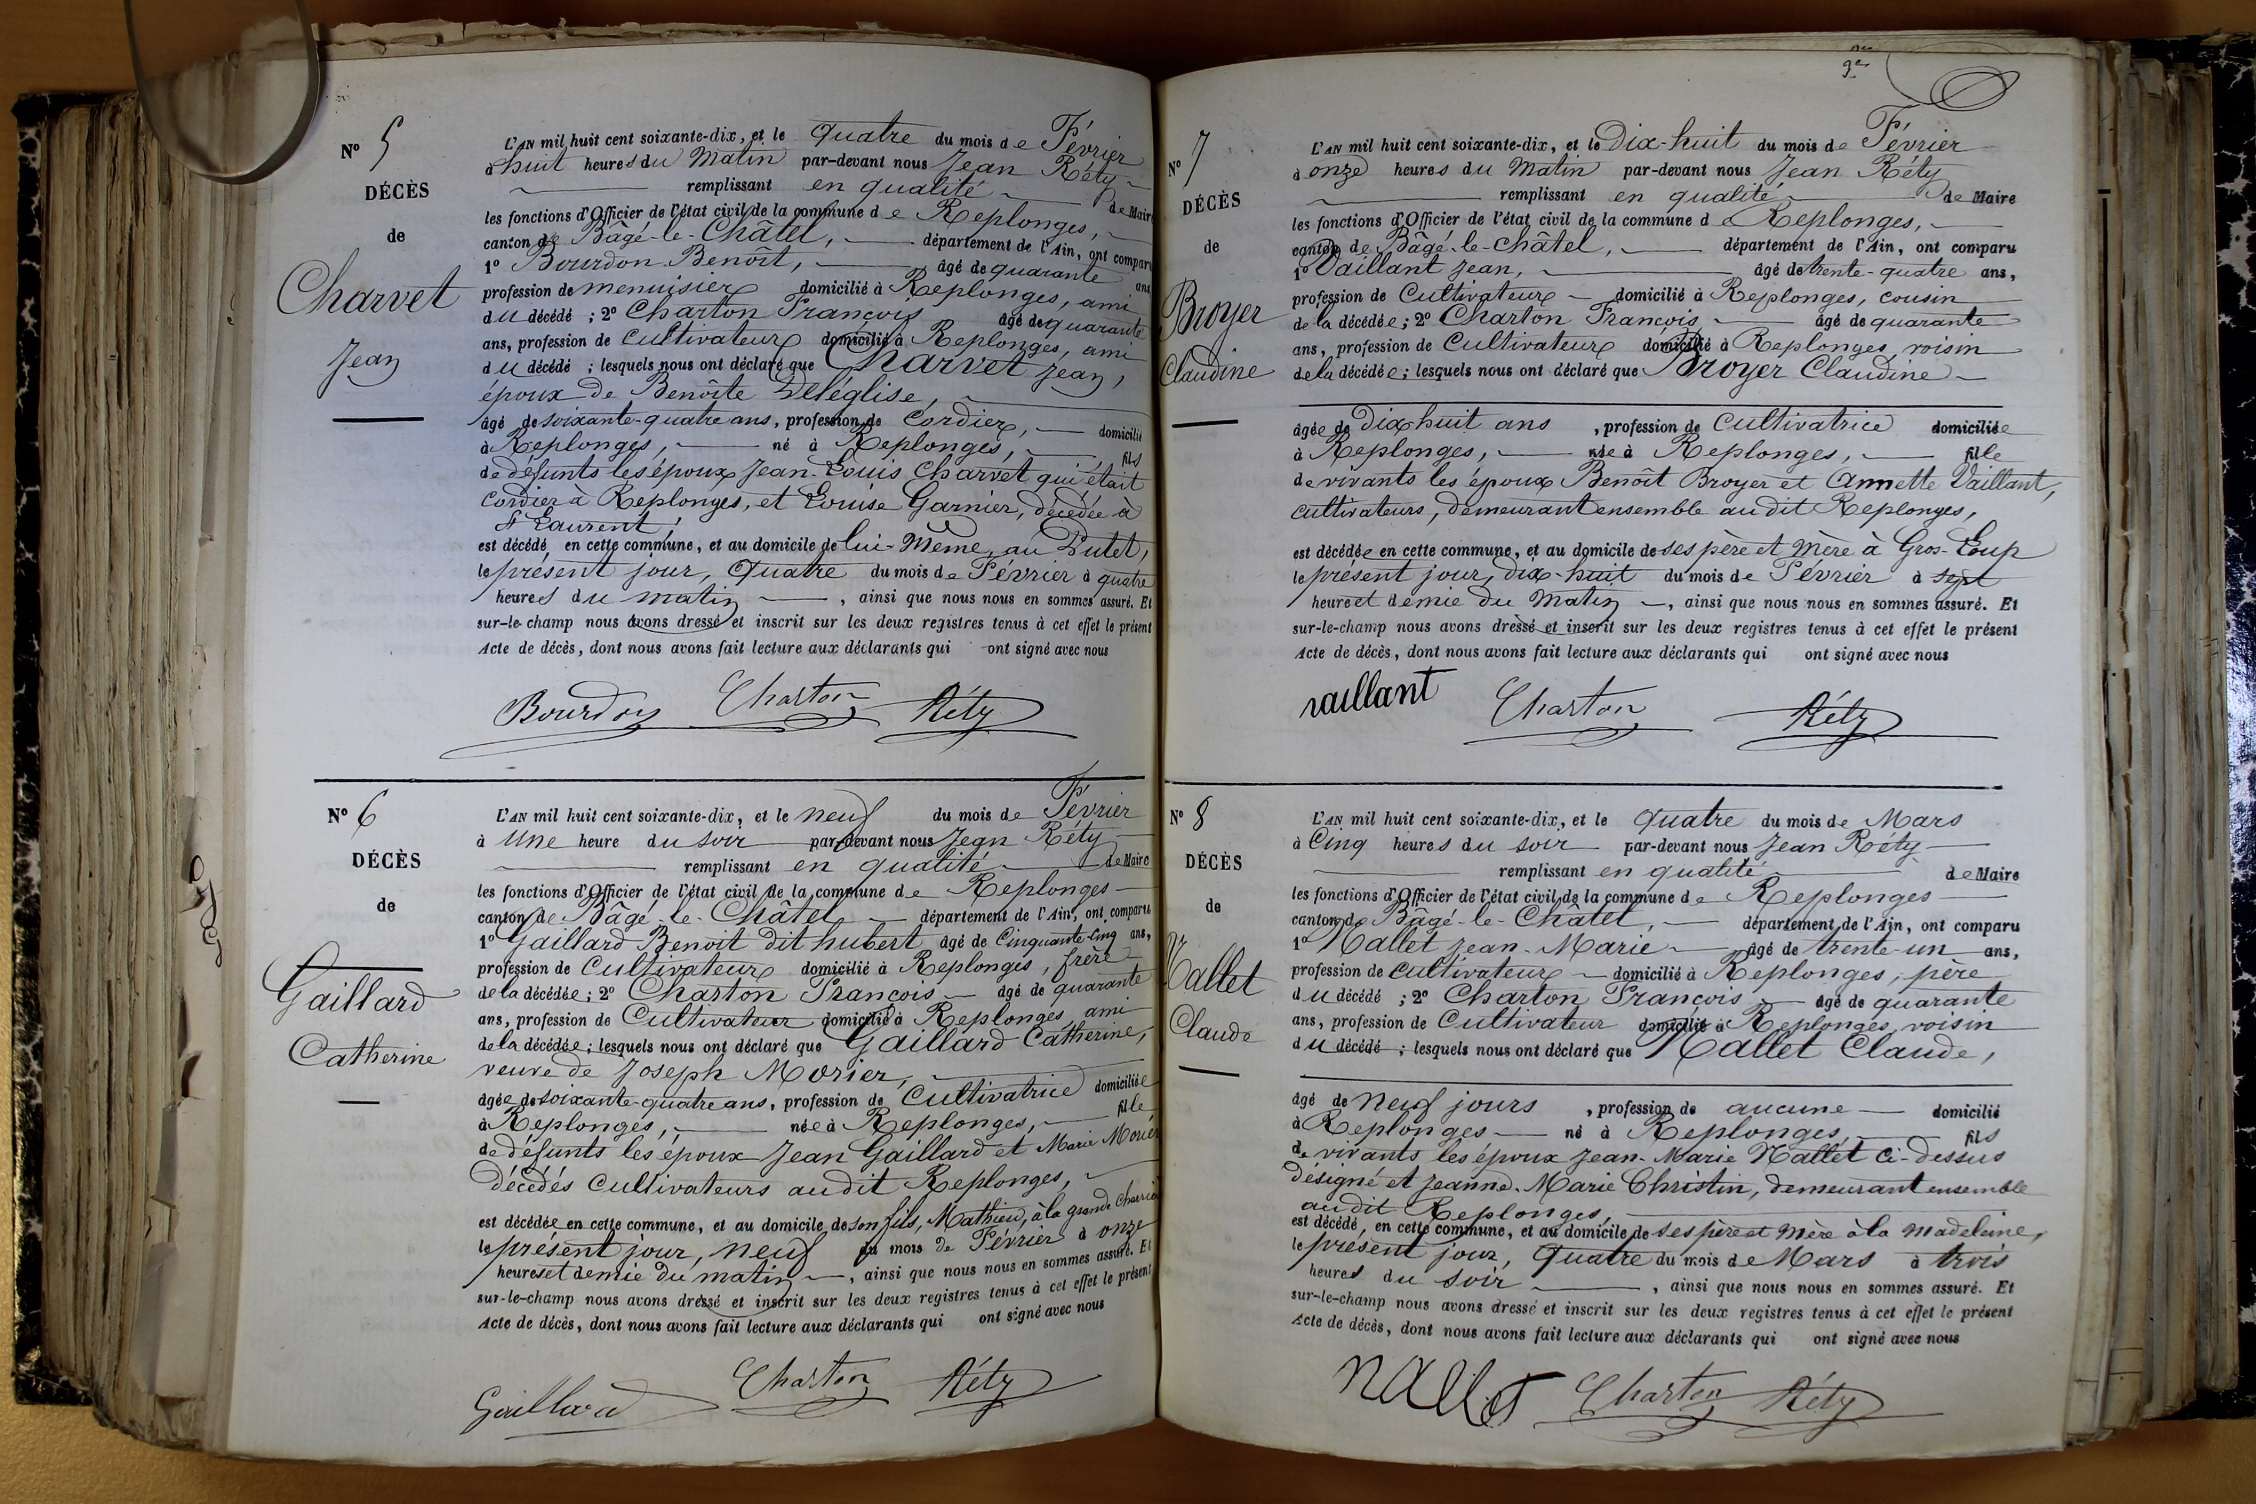 N° 5
DÉCÈS
de
Charvet
Jean
L'AN mil huit cent soixante-dix, et le quatre du mois de Février
à huit heures du Matin par-devant nous Jean Réty
remplissant en qualité de Maire
les fonctions d'Officier de l'état civil de la commune de Replonges,
canton de Bâgé-le-Châtel, département de l'Ain, ont comparu
1° Bourdon Benoît, âgé de quarante ans
profession de menuisier domicilié à Replonges, ami
du décédé ; 2° Charton François âgé de quarante
ans, profession de Cultivateur domicilié à Replonges, ami
du décédé ; lesquels nous ont déclaré que Charvet Jean,
époux de Benoîte Deléglise,
âgé de soixante-quatre ans, profession de Cordier, domicilié
à Replonges, né à Replonges, fils
de défunts les époux Jean-Louis Charvet qui était
cordier à Replonges, et Louise Garnier, décédée à
St Laurent,
est décédé, en cette commune, et au domicile de lui-Même, au Putet,
le présent jour, Quatre du mois de Février à quatre
heures du matin, ainsi que nous nous en sommes assuré. Et
sur-le-champ nous avons dressé et inscrit sur les deux registres tenus à cet effet le présent
Acte de décès, dont nous avons fait lecture aux déclarants qui ont signé avec nous
Bourdon Charton Réty
N° 6
DÉCÈS
de
Gaillard
Catherine
L'AN mil huit cent soixante-dix, et le neuf du mois de Février
à Une heure du soir par-devant nous Jean Réty
remplissant en qualité de Maire
les fonctions d'Officier de l'état civil de la commune de Replonges
canton de Bâgé-le-Châtel département de l'Ain, ont comparu
1° Gaillard Benoît dit hubert âgé de Cinquante-Cinq ans,
profession de Cultivateur domicilié à Replonges, frère
de la décédée ; 2° Charton François âgé de quarante
ans, profession de Cultivateur domicilié à Replonges ami
de la décédée ; lesquels nous ont déclaré que Gaillard Catherine,
veuve de Joseph Morier,
âgée de soixante-quatre ans, profession de Cultivatrice domiciliée
à Replonges, née à Replonges, fille
de défunts les époux Jean Gaillard et Marie Morier
décédés Cultivateurs audit Replonges,
est décédée en cette commune, et au domicile de son fils, Mathieu, à la grande Charrière
le présent jour, neuf du mois de Février à onze
heures et demie du matin, ainsi que nous nous en sommes assuré. Et
sur-le-champ nous avons dressé et inscrit sur les deux registres tenus à cet effet le présent
Acte de décès, dont nous avons fait lecture aux déclarants qui ont signé avec nous
Gaillard Charton Réty
N° 7
DÉCÈS
de
Broyer
Claudine
L'AN mil huit cent soixante-dix, et le Dix-huit du mois de Février
à onze heures du Matin par-devant nous Jean Réty
remplissant en qualité de Maire
les fonctions d'Officier de l'état civil de la commune de Replonges,
canton de Bâgé-le-châtel, département de l'Ain, ont comparu
1° Vaillant Jean, âgé de trente-quatre ans,
profession de Cultivateur domicilié à Replonges, cousin
de la décédée ; 2° Charton François âgé de quarante
ans, profession de Cultivateur domicilié à Replonges voisin
de la décédée ; lesquels nous ont déclaré que Broyer Claudine
âgée de Dix huit ans, profession de Cultivatrice domiciliée
à Replonges, née à Replonges, fille
de vivants les époux Benoît Broyer et Annette Vaillant,
cultivateurs, demeurant ensemble audit Replonges,
est décédée en cette commune, et au domicile de ses père et Mère à Gros-Loup
le présent jour, dix-huit du mois de Février à sept
heures et demie du Matin, ainsi que nous nous en sommes assuré. Et
sur-le-champ nous avons dressé et inscrit sur les deux registres tenus à cet effet le présent
Acte de décès, dont nous avons fait lecture aux déclarants qui ont signé avec nous
vaillant Charton Réty
N° 8
DÉCÈS
de
Nallet
Claude
L'AN mil huit cent soixante-dix, et le quatre du mois de Mars
à Cinq heures du soir par-devant nous Jean Réty
remplissant en qualité de Maire
les fonctions d'Officier de l'état civil de la commune de Replonges
canton de Bâgé-le-Châtel, département de l'Ain, ont comparu
1° Nallet Jean-Marie âgé de trente-un ans,
profession de Cultivateur domicilié à Replonges, père
du décédé ; 2° Charton François âgé de quarante
ans, profession de Cultivateur domicilié à Replonges voisin
du décédé ; lesquels nous ont déclaré que Nallet Claude,
âgé de Neuf jours, profession de aucune domicilié
à Replonges né à Replonges, fils
de vivants les époux Jean-Marie Nallet ci-dessus
désigné et Jeanne-Marie Christin, demeurant ensemble
audit Replonges,
est décédé, en cette commune, et au domicile de ses père et Mère à la Madeleine,
le présent jour, Quatre du mois de Mars à trois
heures du soir, ainsi que nous nous en sommes assuré. Et
sur-le-champ nous avons dressé et inscrit sur les deux registres tenus à cet effet le présent
Acte de décès, dont nous avons fait lecture aux déclarants qui ont signé avec nous
nallet Charton Réty